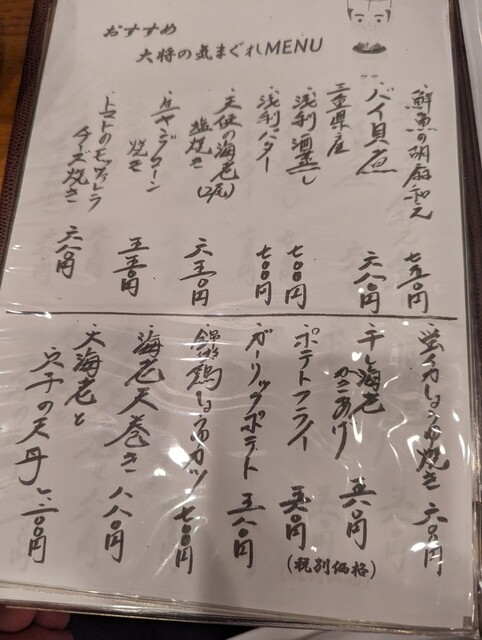 おすすめ
大将の気まぐれMENU
・鮮魚の胡麻和え 七五〇円
・バイ貝煮 六八〇円
三重県産
・浅利酒蒸し 七〇〇円
・浅利バター 七〇〇円
・天使の海老(2尾)
塩焼き 六五〇円
・ヤングコーン
焼き 五五〇円
・トマトのモッツァレラ
チーズ焼き 六八〇円
・蛍イカしょうゆ焼き 六〇〇円
・干し海老
かきあげ 五八〇円
・ポテトフライ 五五〇円
・ガーリックポテト 五八〇円
・錦爽鶏しょうゆカツ 七〇〇円
・海老天巻き 八八〇円
・大海老と
穴子の天丼 一、二〇〇円
(税別価格)